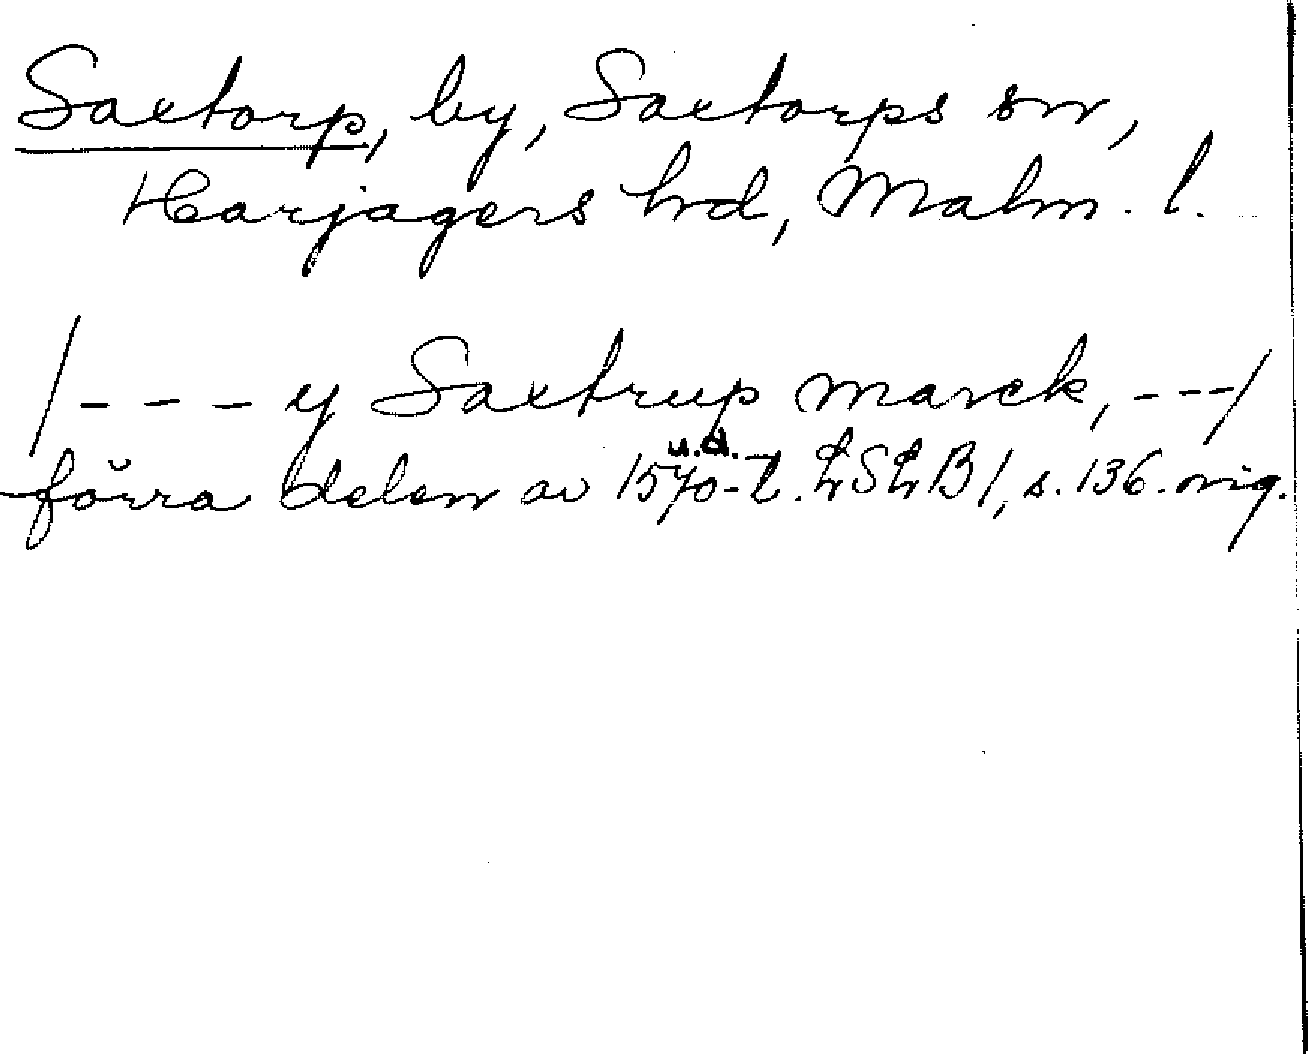 Saxtorp, by, Saxtorps sn,
Harjagers hd, Malm. l.
/--- y Saxtrup marck, ---/
u.d.
förra delen av 1570-t. LSLB 1, s. 136. orig.